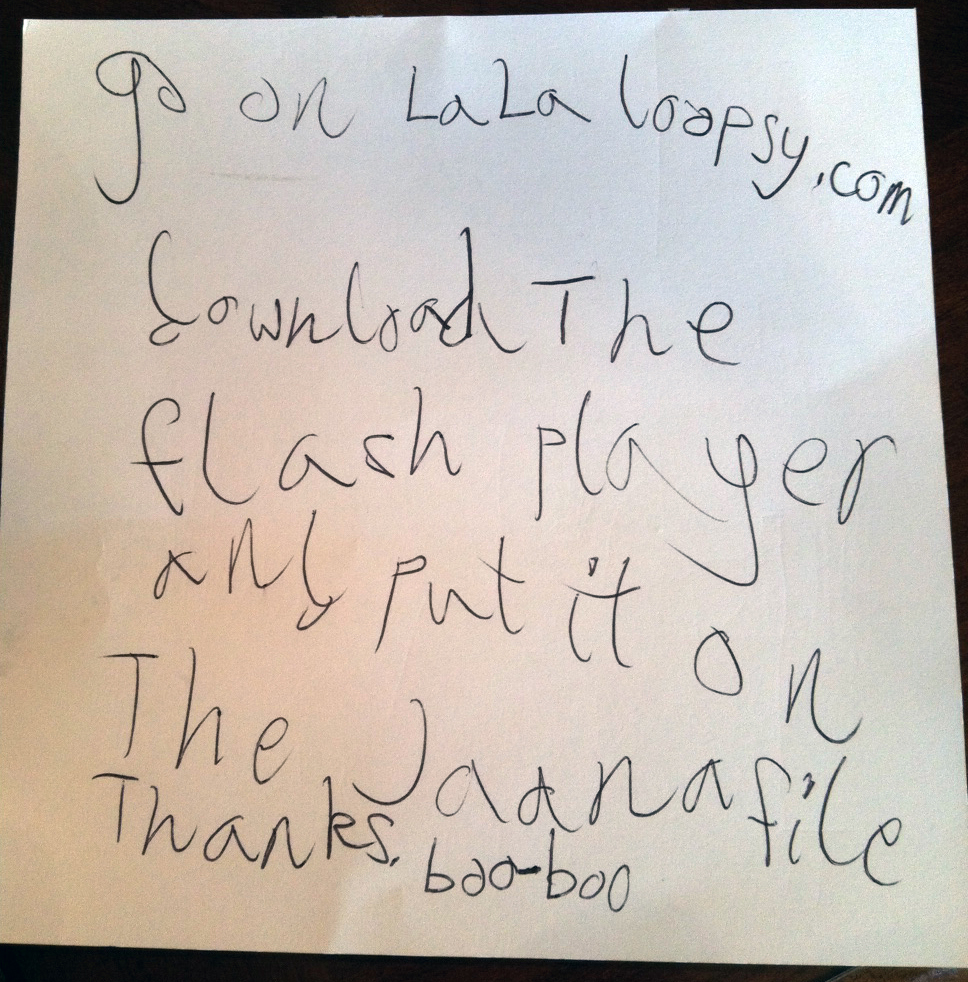 go on LaLa loopsy.com
download The
flash player
and put it on
The Jaanafile
Thanks. boo-boo